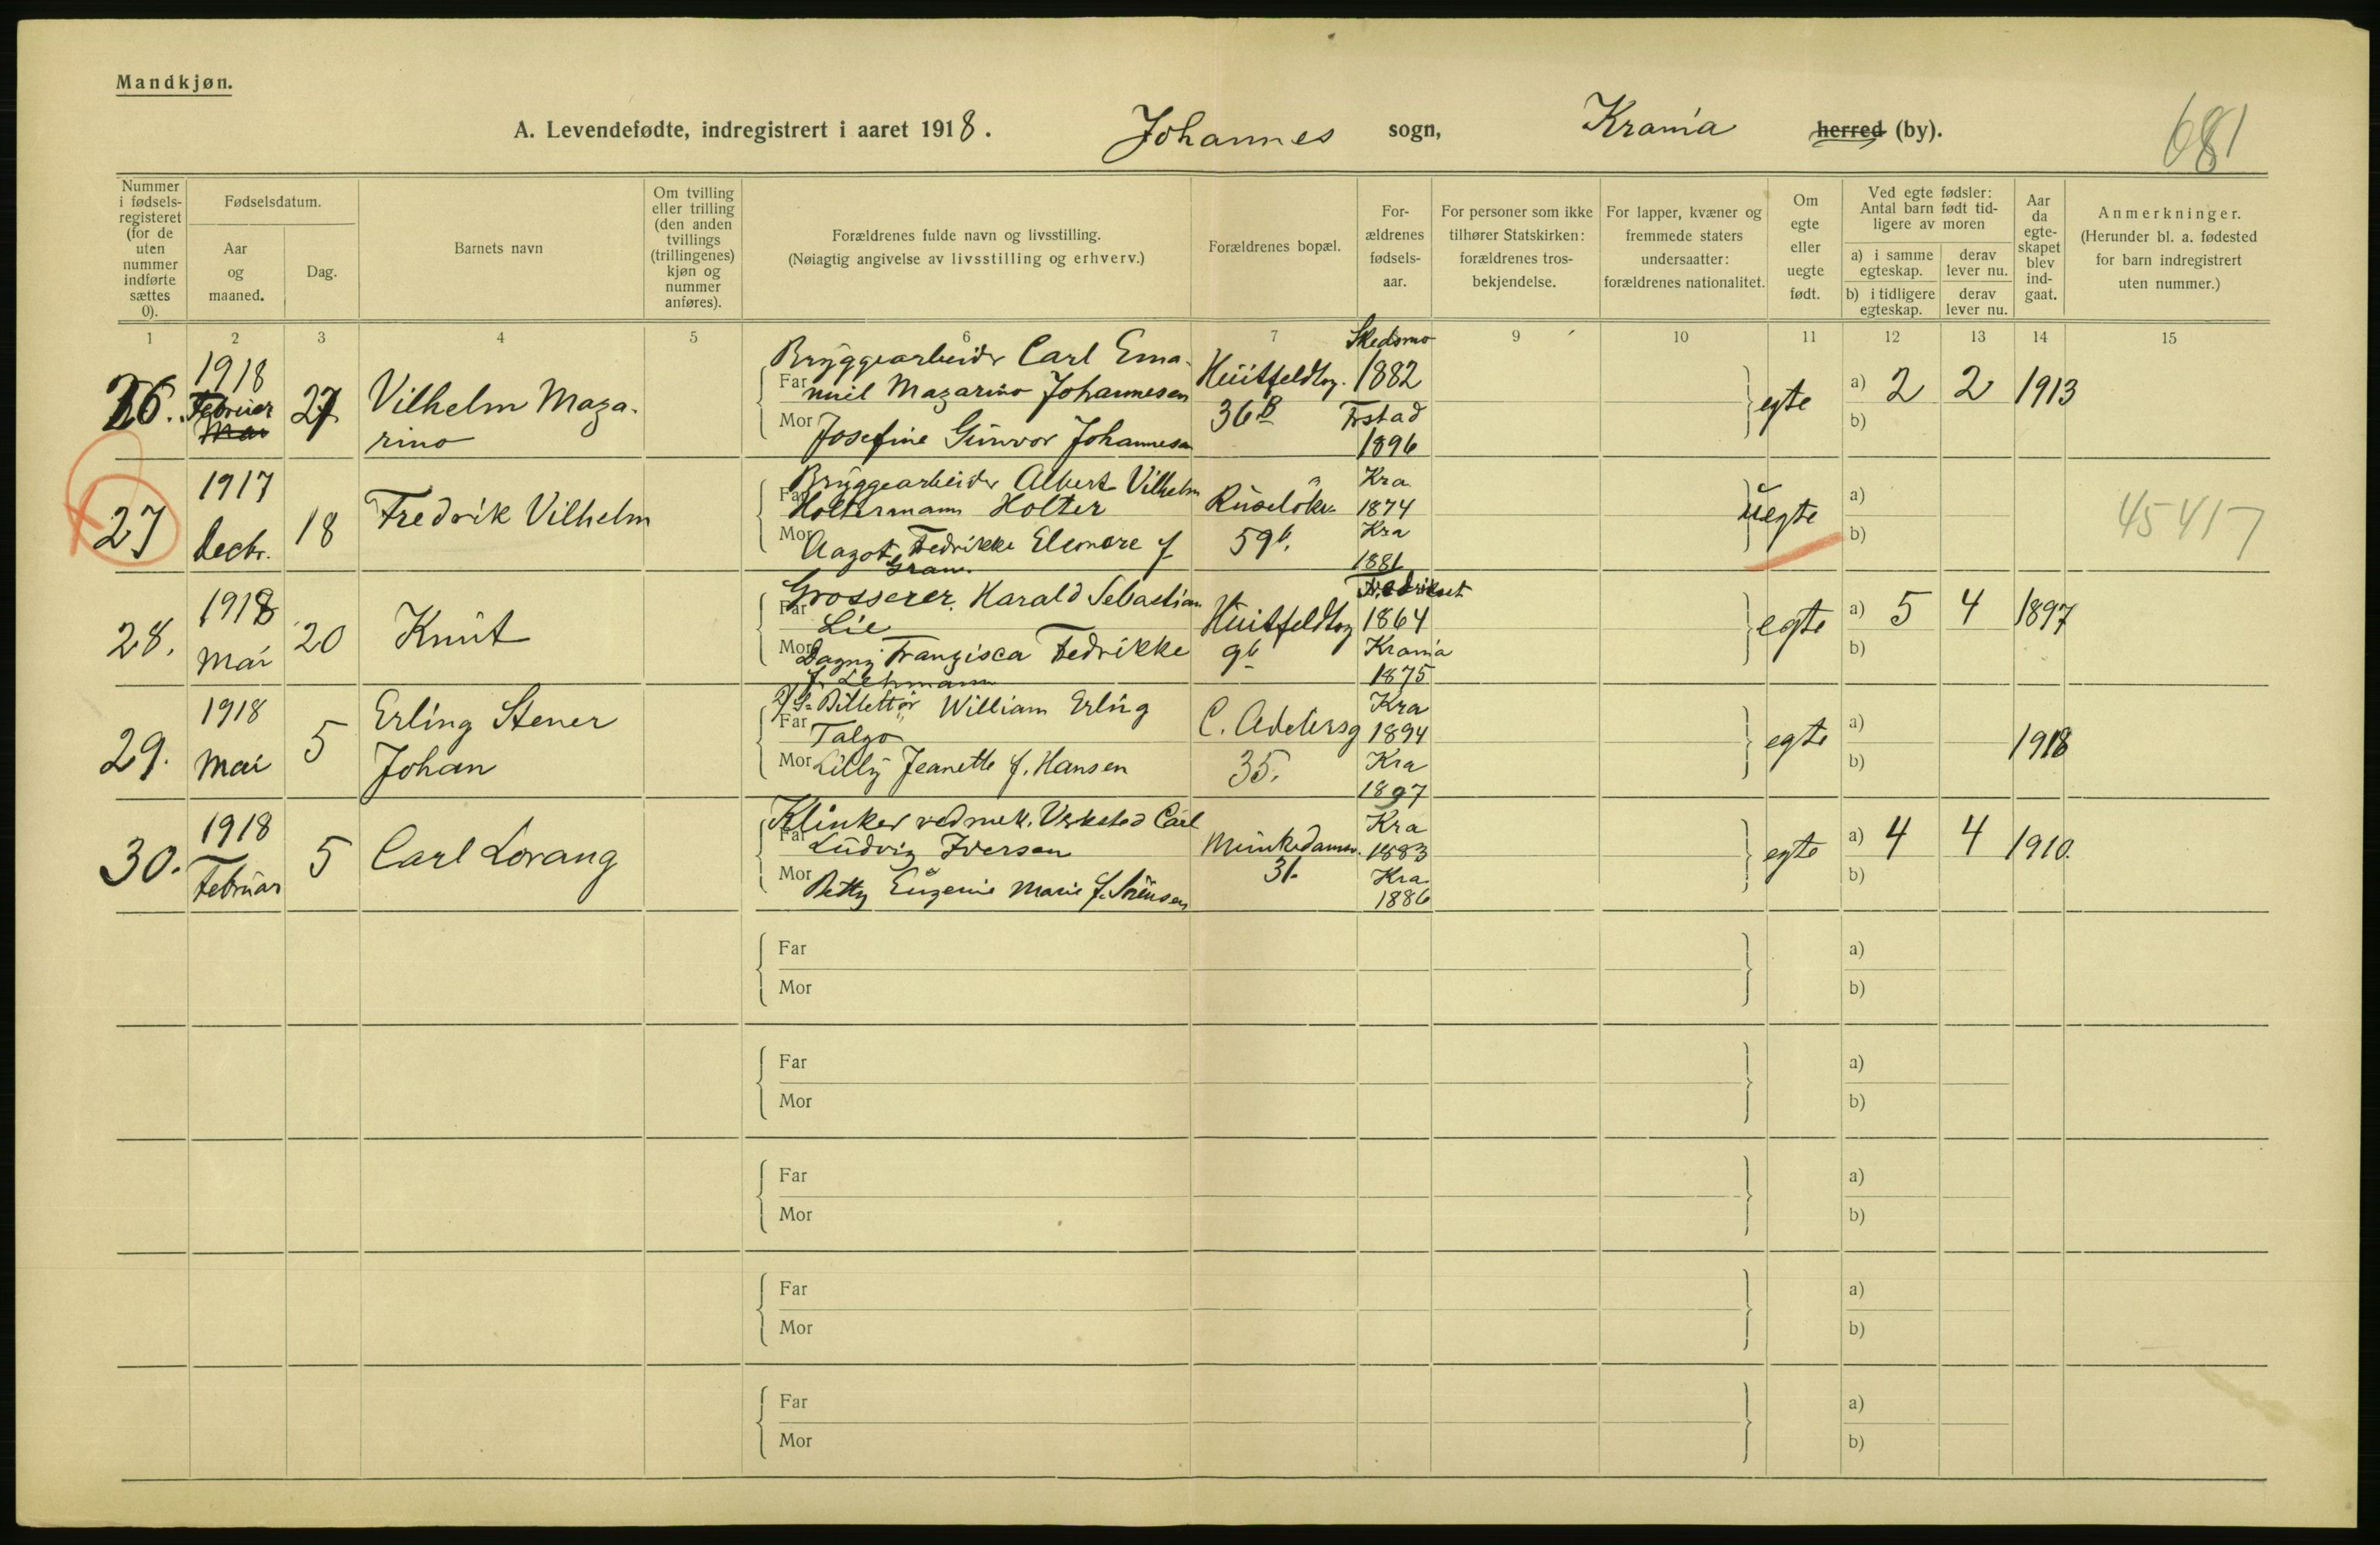 Mandkjøn.
A. Levendefødte, indregistrert i aaret 1918. Johannes sogn, Krania herred (by). 681
Nummer i fødsels-registeret (for de uten nummer indførte sættes 0).
Fødselsdatum.
Aar og maaned.
Dag.
Barnets navn
Om tvilling eller trilling (den anden tvillings (trillingenes) kjøn og nummer anføres).
Forældrenes fulde navn og livsstilling.
(Nøiagtig angivelse av livsstilling og erhverv.)
Forældrenes bopæl.
For-ældrenes fødsels-aar.
For personer som ikke tilhører Statskirken: forældrenes tros-bekjendelse.
For lapper, kvæner og fremmede staters undersaatter: forældrenes nationalitet.
Om egte eller uegte født.
Ved egte fødsler: Antal barn født tid-ligere av moren
a) i samme egteskap.
derav lever nu.
b) i tidligere egteskap.
derav lever nu.
Aar da egte-skapet blev ind-gaat.
Anmerkninger.
(Herunder bl. a. fødested for barn indregistrert uten nummer.)
1 2 3 4 5 6 7 9 10 11 12 13 14 15
26. 1918 Februer Mai 27 Vilhelm Maza-
rino
Bryggearbeider Carl Ema-
Far nuil Mazarino Johannesen
Mor Josefine Gunvor Johannesen
Huitfeldtsg. 36B
Skedsmo 1882
Frstad 1896
egte a) 2 2 1913
b)
27 1917 Decbr. 18 Fredrik Vilhelm
Bryggearbeider Albert Vilhelm
Far Holtermann Holter
Mor Aagot Fedrikke Eleonore f
Gram.
Ruseløkv. 59b.
Kra 1874
Kra 1881
uegte a)
b)
45417
28. 1918 Mai 20 Knut
Grosserer, Harald Sebastian
Far Lie
Mor Dagny Franzisca Fedrikke
f. Lehmann
Huitfeldtsg 9b
Fredrikset 1864
Krania 1875
egte a) 5 4 1897
b)
29. 1918 Mai 5 Erling Stener
Johan
Billettør William Erling
Far Talgø
Mor Lilly Jeanette f. Hansen
C. Adelersg 35.
Kra 1894
Kra 1897
egte a)
b)
1918
30. 1918 Februar 5 Carl Lorang
Klinker ved mek. Verksted Carl
Far Ludvig Iversen
Mor Betty Eugenie Marie f. Sørensen
Munkedamsv. 31.
Kra 1883
Kra 1886
egte a) 4 4 1910.
b)
Far a)
Mor b)
Far a)
Mor b)
Far a)
Mor b)
Far a)
Mor b)
Far a)
Mor b)